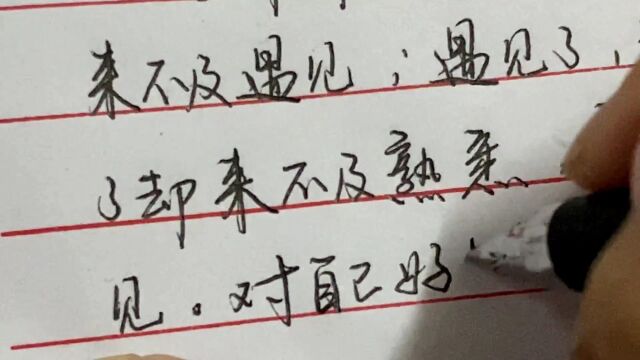 来不及遇见；遇见了，
了却来不及熟悉
见。对自己好